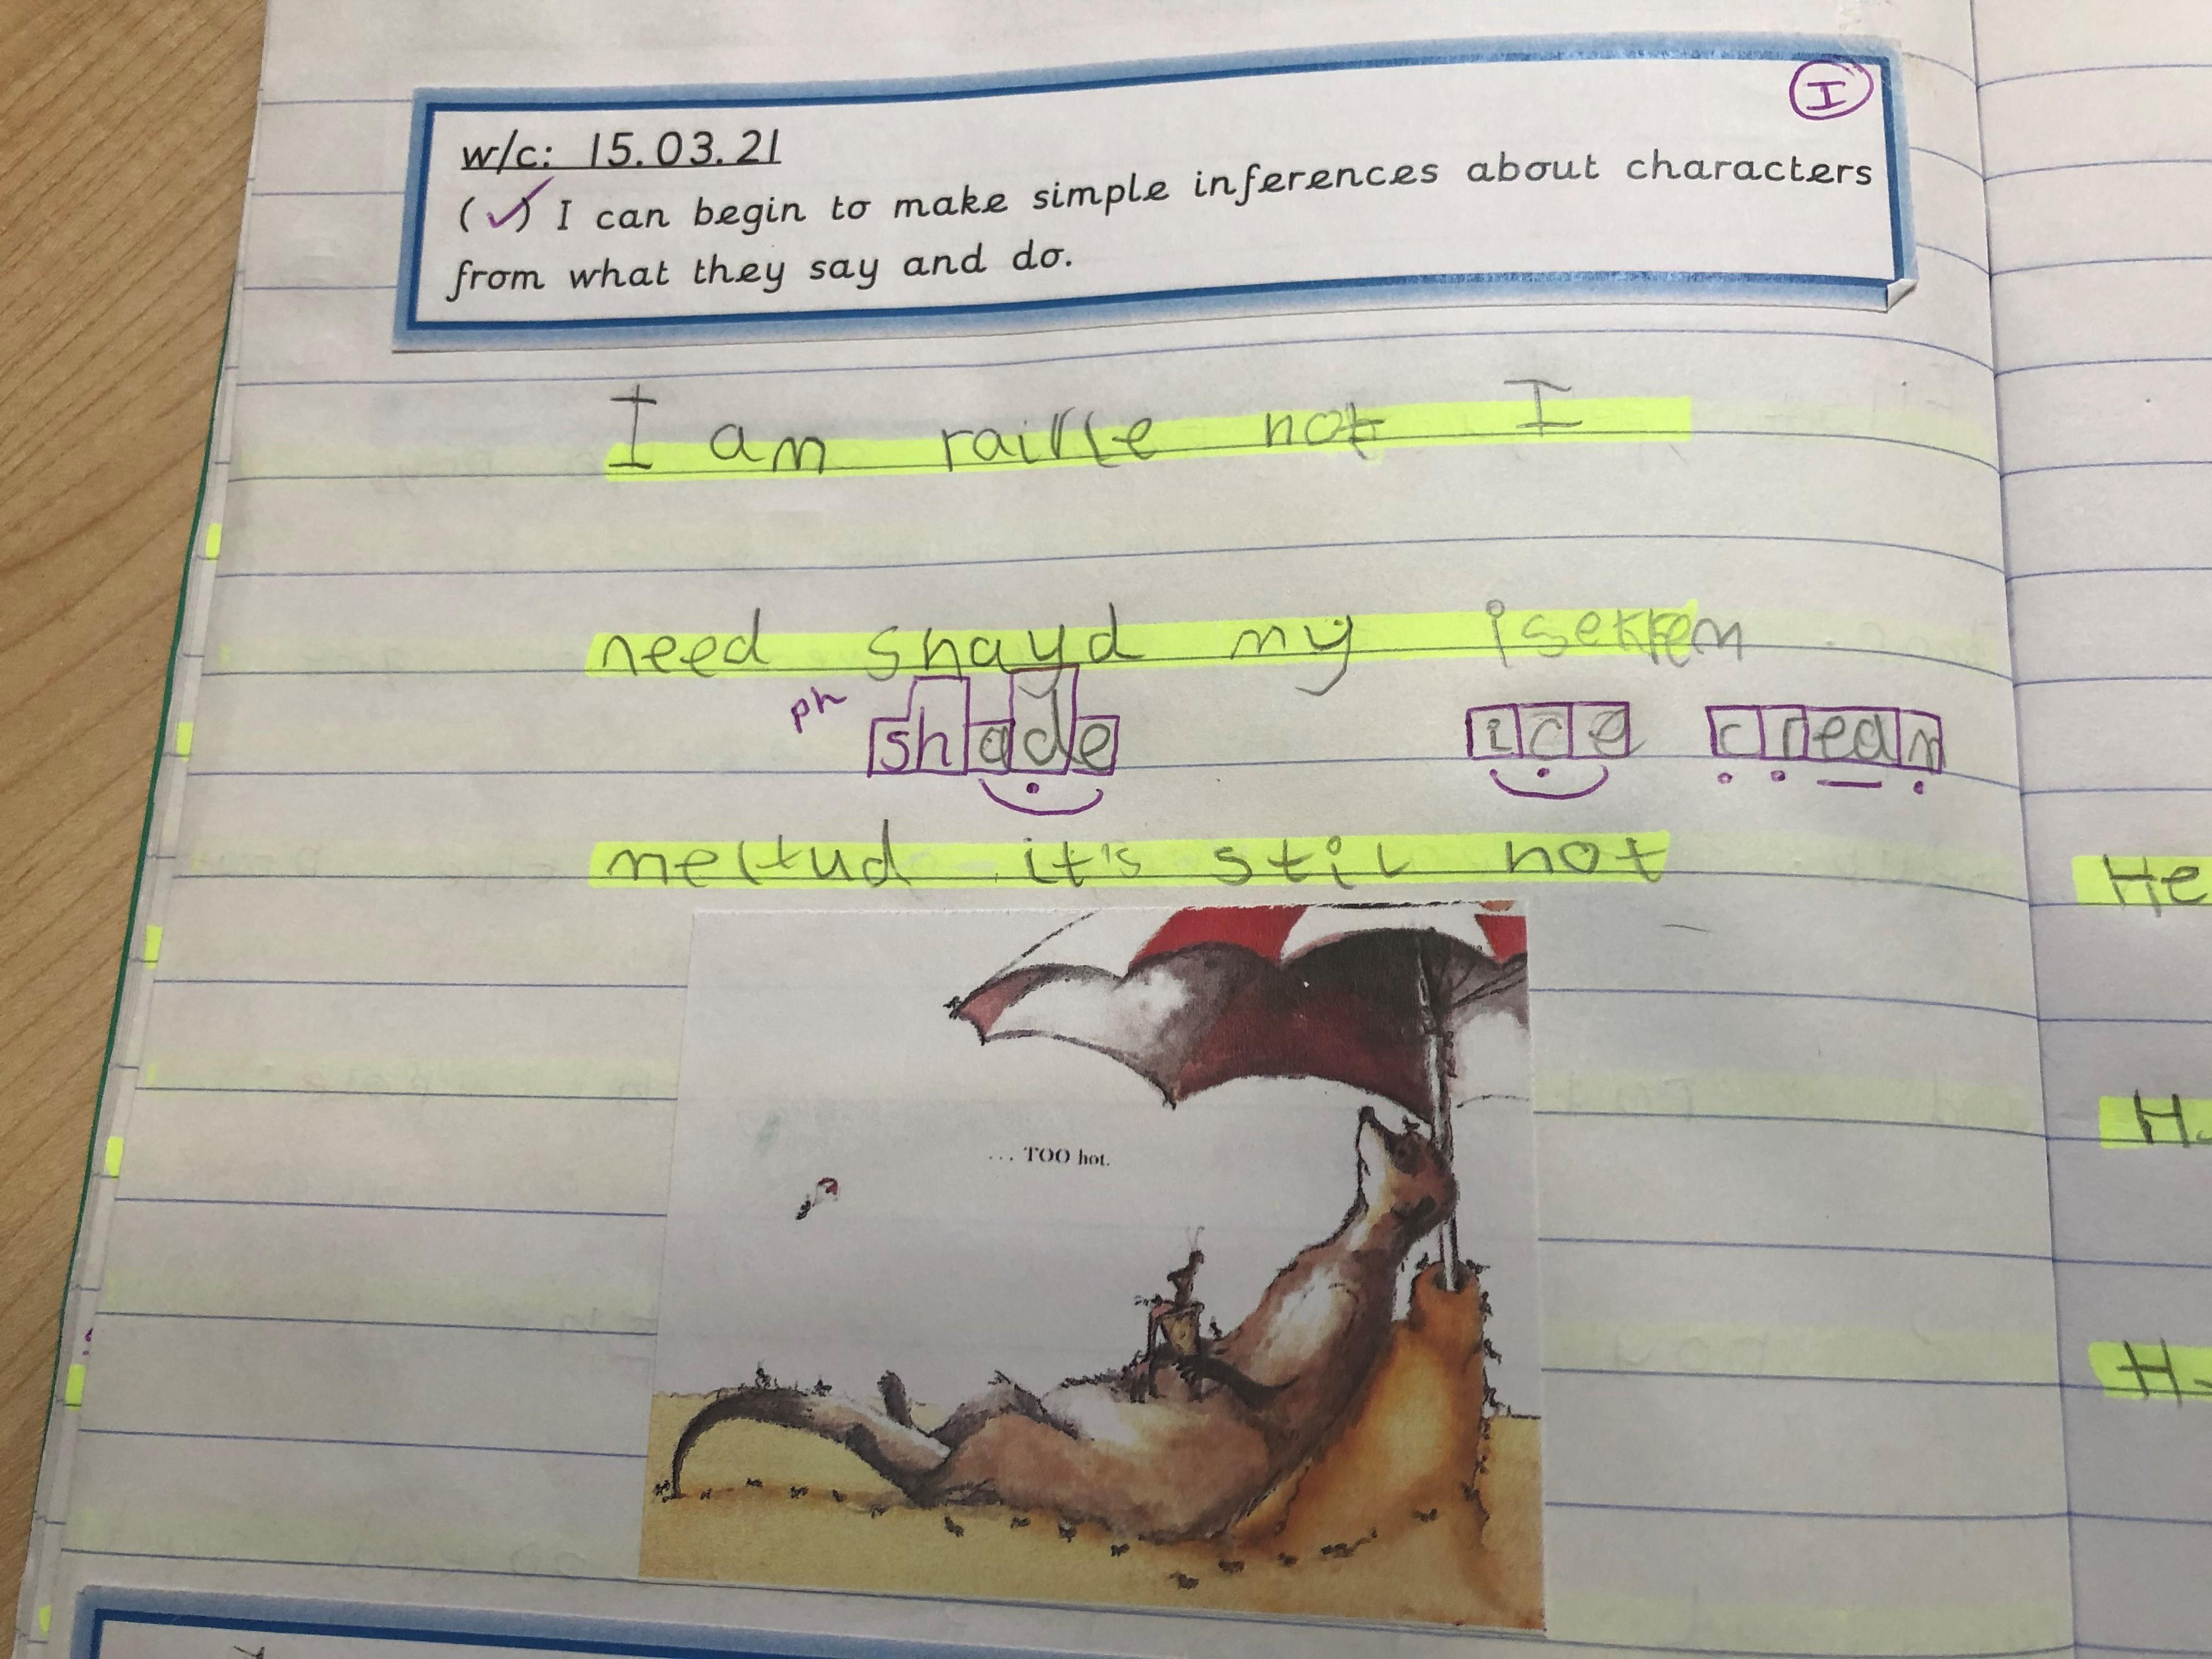 I
w/c: 15.03.21
(✓) I can begin to make simple inferences about characters
from what they say and do.
I am raille hot I
need shayd my isekrem
ph shade ice cream
meltud it's stil hot
... TOO hot.
He
H
H